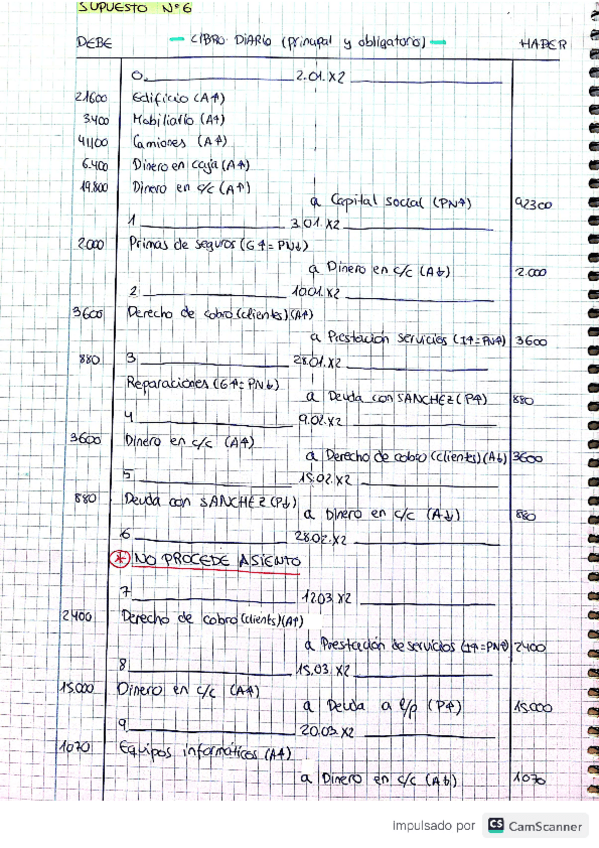 SUPUESTO Nº 6
DEBE — LIBRO DIARIO (principal y obligatorio) — HABER
0. 2.01.X2
21600 Edificio (A↑)
3.400 Mobiliario (A↑)
41100 Camiones (A↑)
6.400 Dinero en caja (A↑)
19.800 Dinero en c/c (A↑)
a Capital social (PN↑) 92300
1 3.01.X2
2.000 Primas de seguros (G↑=PN↓)
a Dinero en c/c (A↓) 2.000
2 10.01.X2
3600 Derecho de cobro (clientes) (A↑)
a Prestación servicios (I↑=PN↑) 3600
880 3 28.01.X2
Reparaciones (G↑=PN↓)
a Deuda con SANCHEZ (P↑) 880
4 9.02.X2
3600 Dinero en c/c (A↑)
a Derecho de cobro (clientes) (A↓) 3600
5 15.02.X2
880 Deuda con SANCHEZ (P↓)
a Dinero en c/c (A↓) 880
6 28.02.X2
* NO PROCEDE ASIENTO
7 12.03.X2
2400 Derecho de cobro (clients) (A↑)
a Prestación de servicios (I↑=PN↑) 2400
8 15.03.X2
15.000 Dinero en c/c (A↑)
a Deuda a l/p (P↑) 15.000
9 20.03.X2
1070 Equipos informáticos (A↑)
a Dinero en c/c (A↓) 1070
Impulsado por CS CamScanner